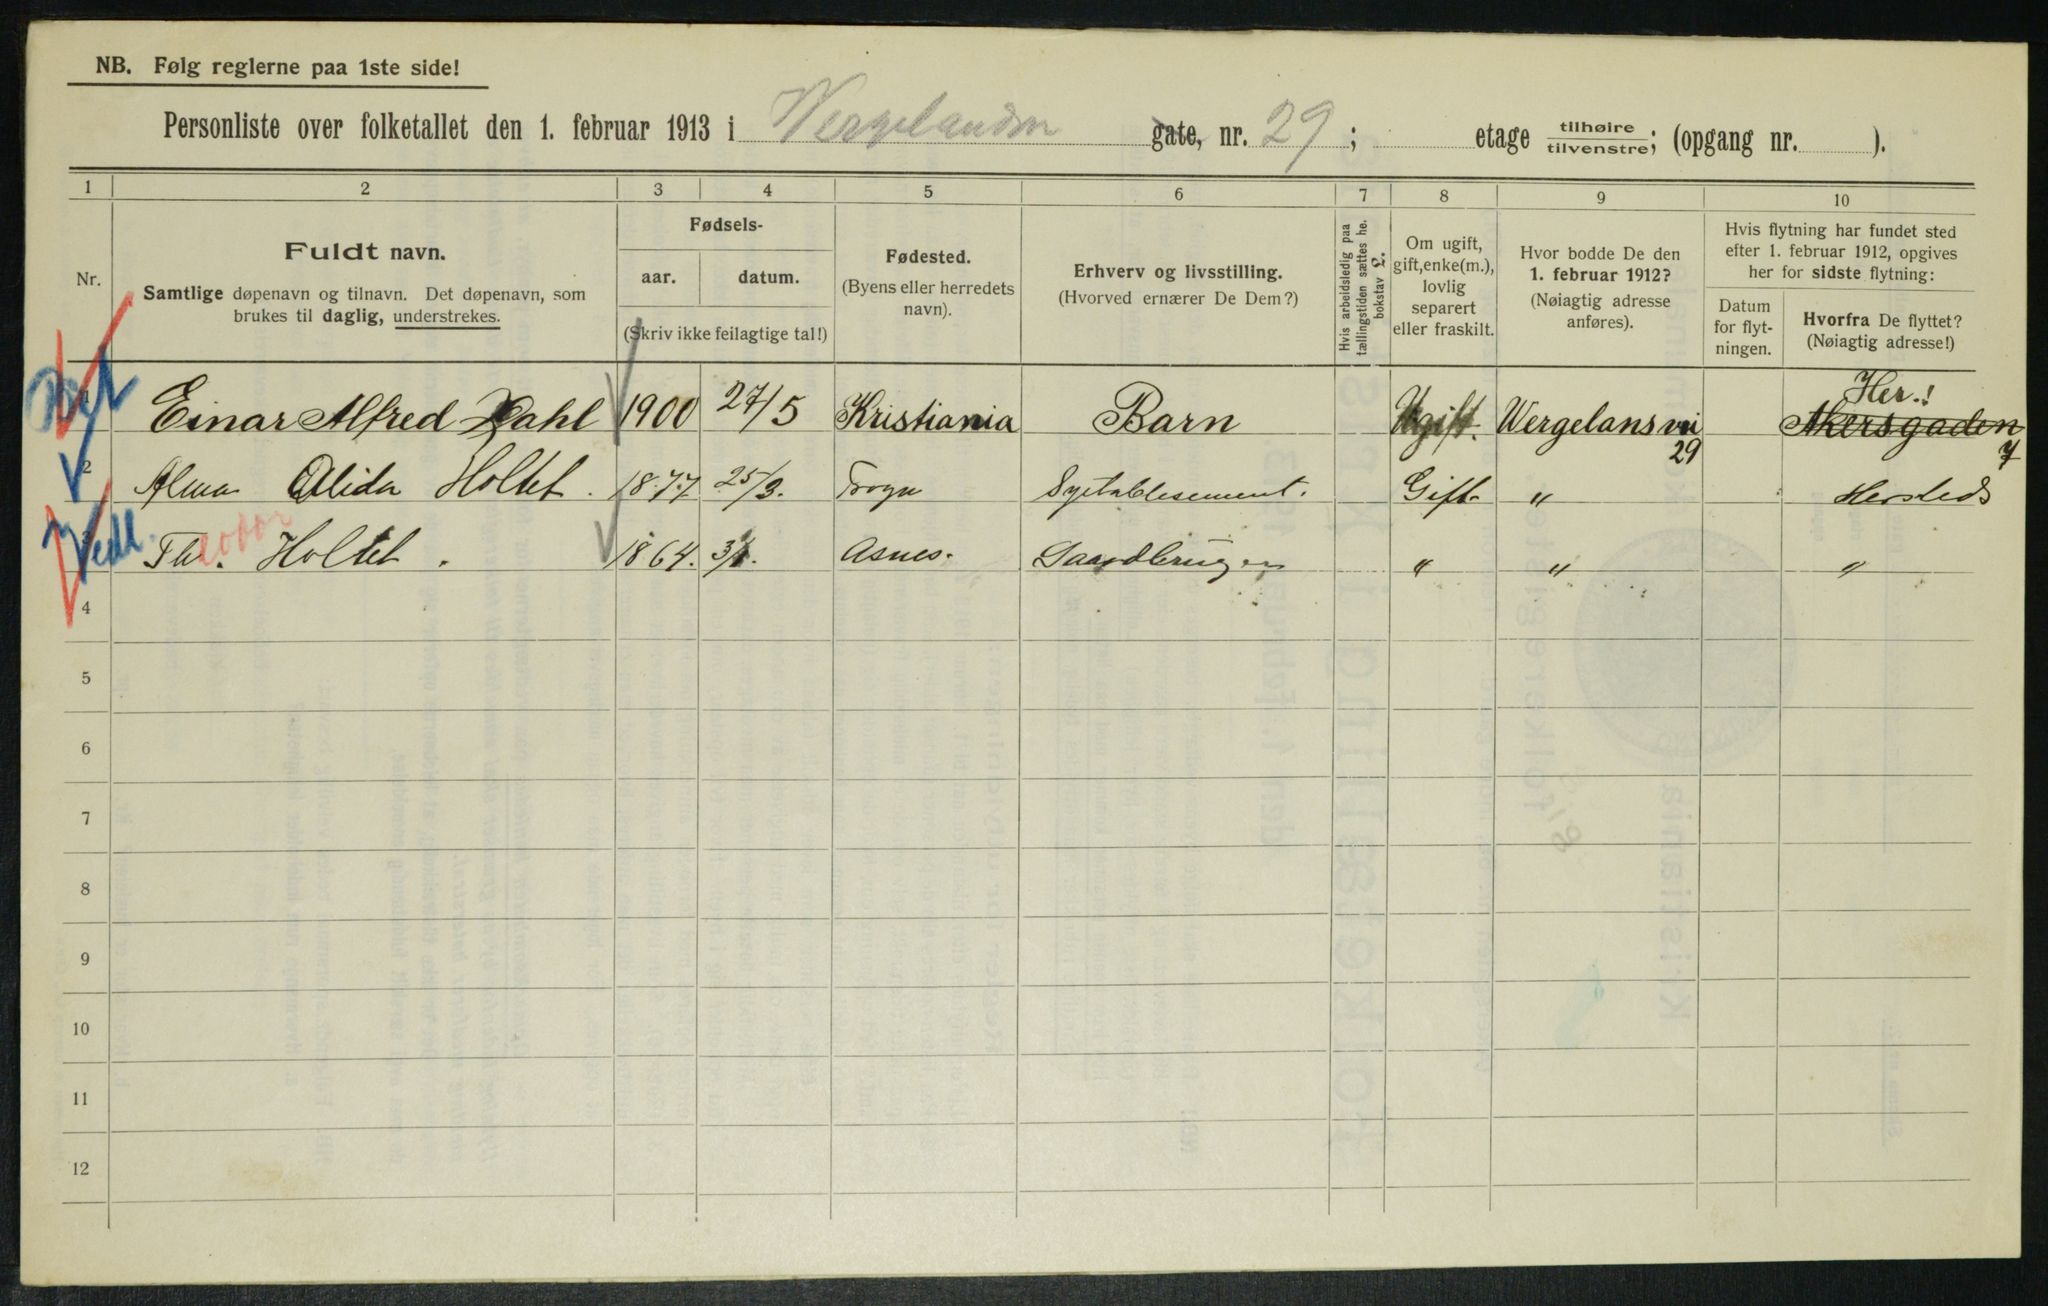 NB. Følg reglerne paa 1ste side!
Personliste over folketallet den 1. februar 1913 i Wergelandsv gate, nr. 29; etage tilhøire tilvenstre; (opgang nr. ).
1 2 3 4 5 6 7 8 9 10
Nr.
Fuldt navn.
Samtlige døpenavn og tilnavn. Det døpenavn, som
brukes til daglig, understrekes.
Fødsels-
aar. datum.
(Skriv ikke feilagtige tal!)
Fødested.
(Byens eller herredets
navn).
Erhverv og livsstilling.
(Hvorved ernærer De Dem?)
Hvis arbeidsledig paa
tællingstiden sættes he.
bokstav L.
Om ugift,
gift, enke(m.),
lovlig
separert
eller fraskilt.
Hvor bodde De den
1. februar 1912?
(Nøiagtig adresse
anføres).
Hvis flytning har fundet sted
efter 1. februar 1912, opgives
her for sidste flytning:
Datum
for flyt-
ningen.
Hvorfra De flyttet?
(Nøiagtig adresse!)
Her.!
1 Einar Alfred Dahl 1900 27/5 Kristiania Barn Ugift. Wergelansvei 29 Akersgaden 7
2 Alma Alida Holtet. 1877 25/3. Trøgn Syetablisement. Gift " Hersteds
Vedl.
3 Th. Holtet. 1864. 3/1. Asnes. Gaardbruger " " "
4
5
6
7
8
9
10
11
12